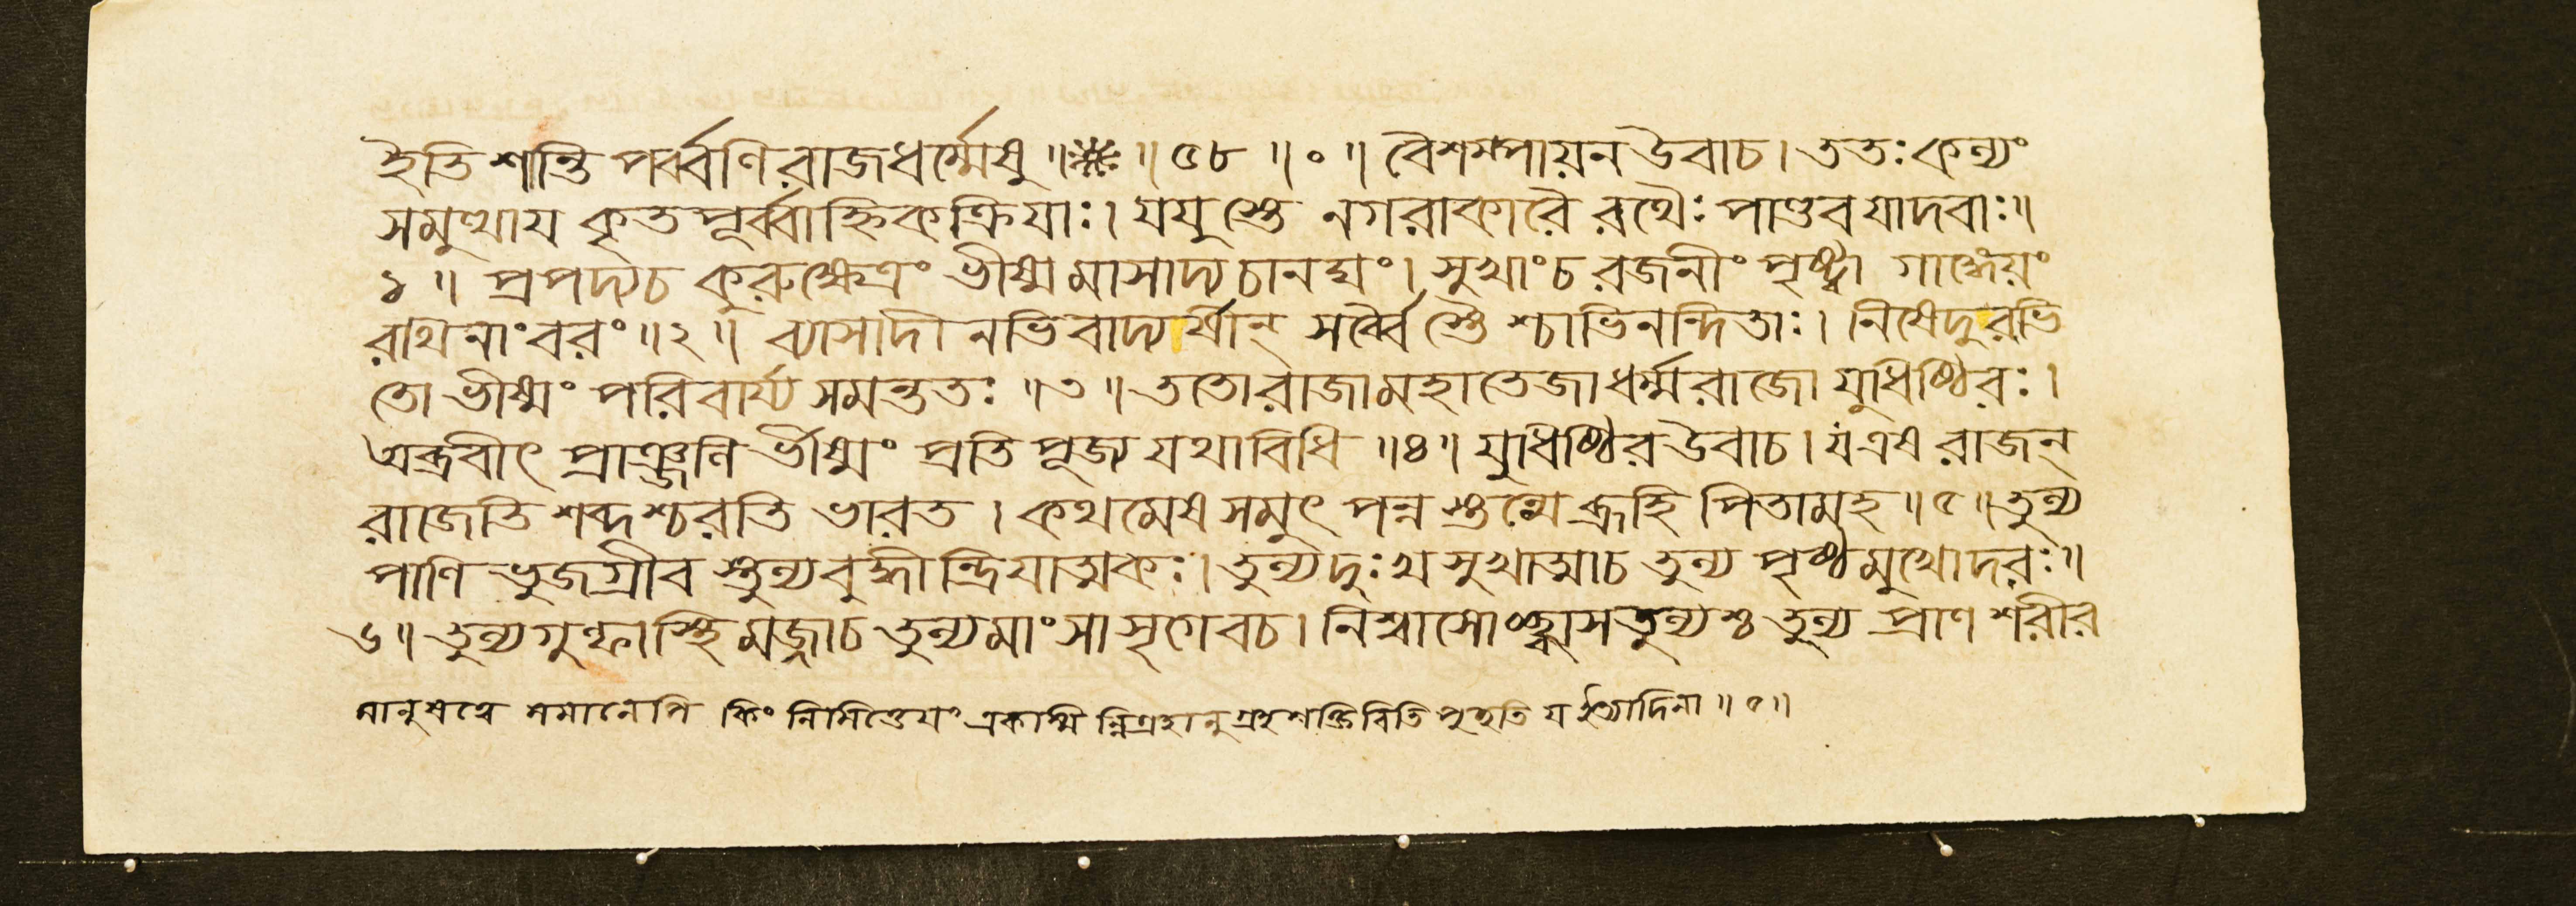 ইতি শান্তি পর্ব্বণি রাজধর্ম্মেষু ॥ ॥ ৫৮ ॥ ০ ॥ বৈশম্পায়ন উবাচ । ততঃ কল্যং
সমুত্থায কৃত পূর্ব্বাহ্নিক ক্রিযাঃ । যযুস্তে নগরাকারৈ রথৈঃ পাণ্ডব যাদবাঃ ॥
১ ॥ প্রপদ্যচ কুরুক্ষেত্রং ভীষ্ম মাসাদ্য চানঘং । সুখাংচ রজনীং পৃষ্ট্বা গাঙ্গেয়ং
রথিনাং বরং ॥ ২ ॥ ব্যাসাদী নভিবাদ্যর্ষীন্ সর্ব্বৈ স্তৈ শ্চাভিনন্দিতাঃ । নিষেদুরভি
তো ভীষ্মং পরিবার্য্য সমন্ততঃ ॥ ৩ ॥ ততো রাজা মহাতেজা ধর্ম্মরাজো যুধিষ্ঠিরঃ ।
অব্রবীৎ প্রাঞ্জলি র্ভীষ্মং প্রতি পূজ্য যথাবিধি ॥ ৪ ॥ যুধিষ্ঠির উবাচ । য এষ রাজন্
রাজেতি শব্দশ্চরতি ভারত । কথমেষ সমুৎ পন্ন স্তন্মে ব্রূহি পিতামহ ॥ ৫ ॥ তুল্য
পাণি ভুজগ্রীব স্তুল্যবুদ্ধীন্দ্রিযাত্মকঃ । তুল্যদুঃখ সুখাত্মাচ তুল্য পৃষ্ঠমুখোদরঃ ॥
৬ ॥ তুল্যশুক্রাস্থি মজ্জাচ তুল্যমাংসাসৃগেবচ । নিশ্বাসোচ্ছ্বাসতুল্যশ্চ তুল্য প্রাণ শরীর
কিং নিমিত্তেযং